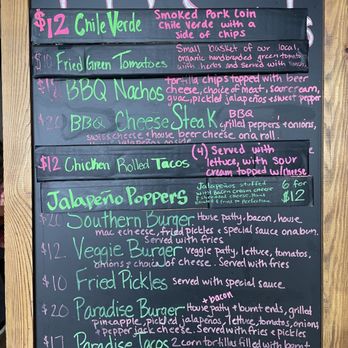 $12 Chile Verde Smoked Pork Loin
Chile Verde with a
side of chips
Fried Green Tomatoes Small basket of our local,
organic handbreaded green tomatoes
with herbs and served with
BBQ Nachos tortilla chips topped with beer
cheese, choice of meat, sour cream,
guac, pickled jalapeños + sweet pepper
$20 BBQ Cheese Steak BBQ,
grilled peppers + onions,
swiss cheese + house beer cheese on a roll.
$12 Chicken Rolled Tacos (4) Served with
lettuce, with sour
cream topped w/
Jalapeño Poppers Jalapeños stuffed
with bacon cream cheese
6 for
$12
$20 Southern Burger House patty, bacon, house
mac + cheese, fried pickles + special sauce on a bun.
Served with fries
$12 Veggie Burger veggie patty, lettuce, tomatoes,
onions + choice of cheese. Served with fries.
$10 Fried Pickles Served with special sauce.
$20 Paradise Burger House patty + burnt ends, grilled
+ bacon
pineapple, pickled jalapeños, lettuce, tomatoes, onions
+ pepper jack cheese. Served with fries + pickles
$17 Paradise Tacos 2 corn tortillas filled with burnt